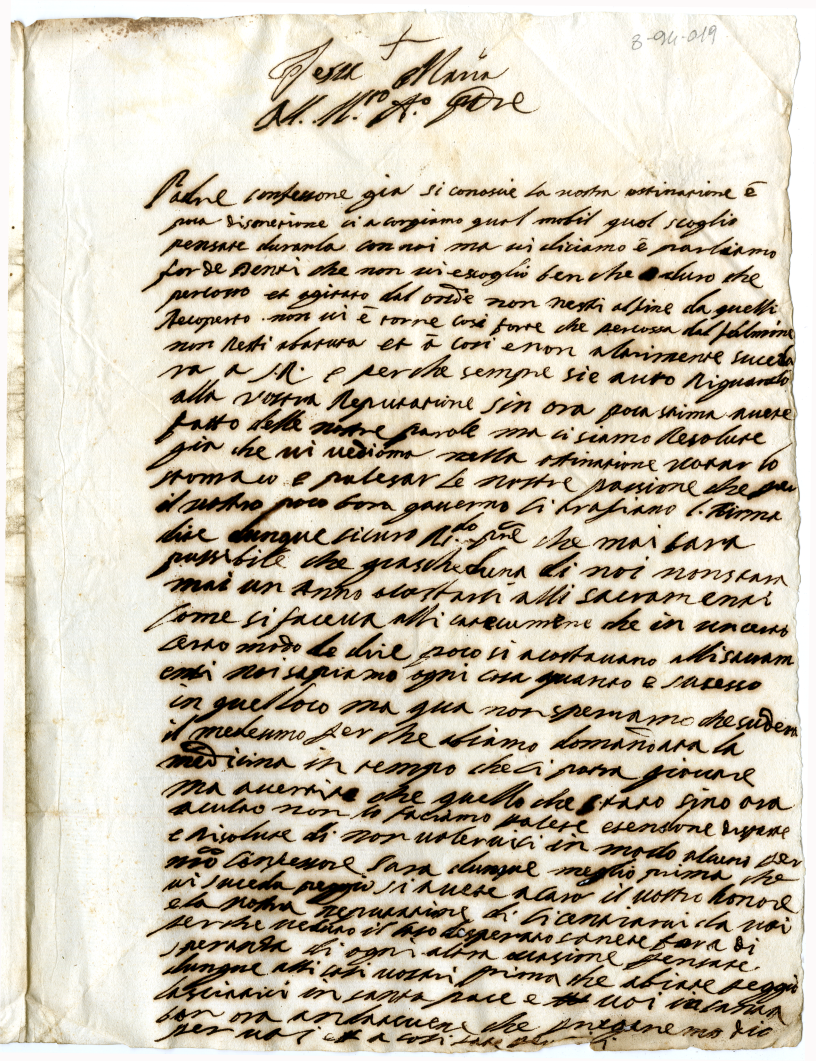 8-94-019
Jesu Maria
M. M.to R.o Padre
Padre confessore gia si conoscie la vostra ostinatione è
poca discretione ci acorgiamo qual mobil qual scoglio
pensate durarla con noi ma vi diciamo è parliamo
for de Denti che non vi è scoglio ben che duro che
percosso et agitato dal onde non resti alfine da quelli
Recoperto non vi è torre cosi forte che percossa dal fulmine
non Resti abatuta et à cosi e non altrimente suceda
ra a S.R. e perche sempre si è auto Riguardo
alla vostra Reputatione sin ora poca stima avete
fatto delle nostre parole ma ci siamo Resolute
gia che vi vediamo nella ostinatione votar lo
stomaco e palesar le nostre passione che per
il vostro poco bon governo ci
dite dunque sicuro R.do pre che mai sara
possibile che quascheduna di noi non stara
mai un Anno acostarsi alli sacramenti
come si faceva alli catecumene che in un certo
certo modo le dite poco si acostavano alli sacram
enti noi sapiamo ogni cosa quanto e sucesso
in quel loco ma qua non speriamo che suceda
il medesimo perche abiamo domandata la
medicina in tempo che ci possa giovare
ma avertite che quello che stato sino ora
aculto non lo faciamo palese esendone disposte
e Risolute di non valervici in modo alcuno per
nro Confessore sara dunque meglio prima che
vi suceda peggio si avete a caro il vostro honore
e la nostra reputatione di licentiarvi da voi
perche veduto il caso desperato sarete fora di
speranza di ogni altra ocasione pensate
dunque alli casi vostri prima che abiate peggio
lasciatici in santa pace e voi
bon ora andatevene che pregaremo dio
per voi et a cosi